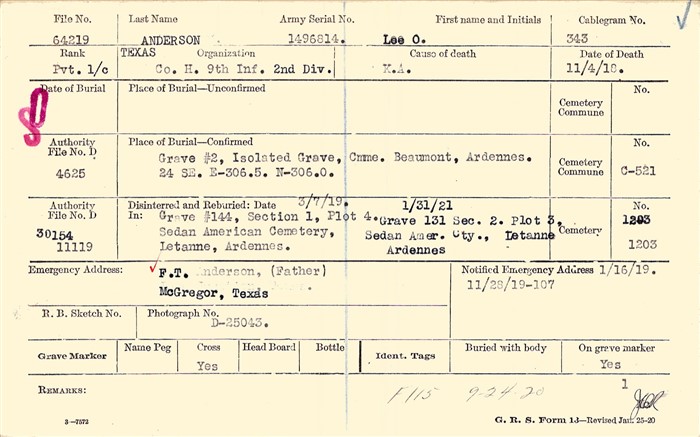 File No. Last Name Army Serial No. First name and Initials Cablegram No.
64219 ANDERSON 1496814. Lee O. 343
Rank TEXAS Organization Cause of death Date of Death
Pvt. 1/c Co. H. 9th Inf. 2nd Div. K.A. 11/4/18.
Date of Burial Place of Burial—Unconfirmed No.
Cemetery
Commune
Authority Place of Burial—Confirmed No.
File No. D Grave #2, Isolated Grave, Cmme. Beaumont, Ardennes. Cemetery
4625 24 SE. E-306.5. N-306.0. Commune C-521
Authority Disinterred and Reburied: Date 3/7/19. 1/31/21 No.
File No. D In: Grave #144, Section 1, Plot 4. Grave 131 Sec. 2. Plot 3, 1203
30154 Sedan American Cemetery, Sedan Amer. Cty., Letanne Cemetery
11119 Letanne, Ardennes. Ardennes 1203
Emergency Address: F.T. Anderson, (Father) Notified Emergency Address 1/16/19.
McGregor, Texas 11/28/19-107
R. B. Sketch No. Photograph No.
D-25043.
Grave Marker Name Peg Cross Head Board Bottle Ident. Tags Buried with body On grave marker
Yes Yes
REMARKS: F115 9-24-20 1
3—7572 G. R. S. Form 13—Revised Jan. 25-20